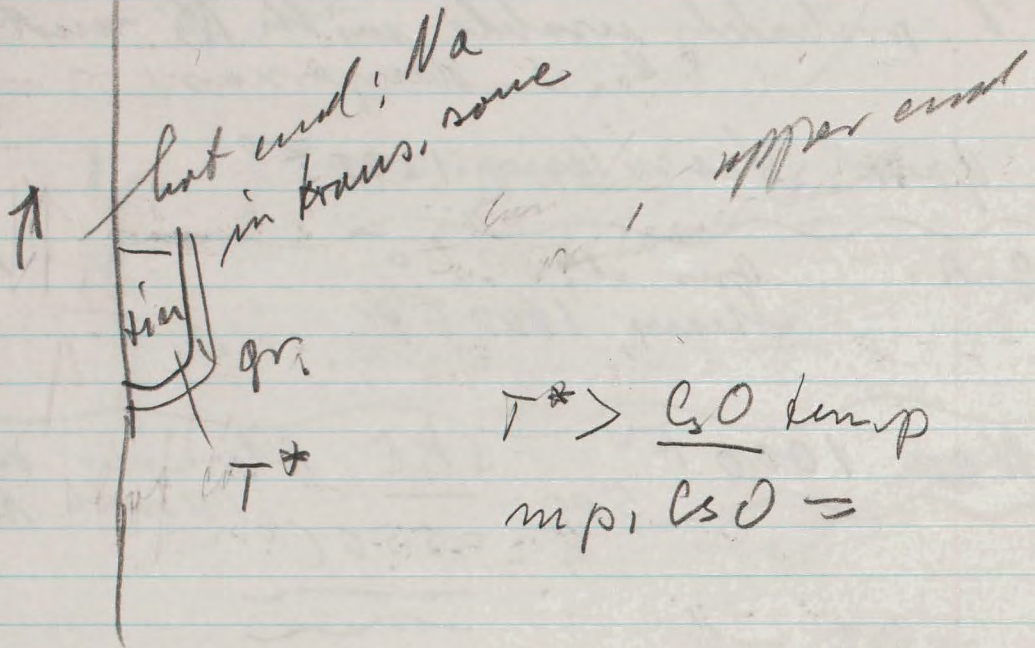 hot end: Na
in trans. zone
upper end
gr.
T*
T* > CsO temp
mp, CsO =